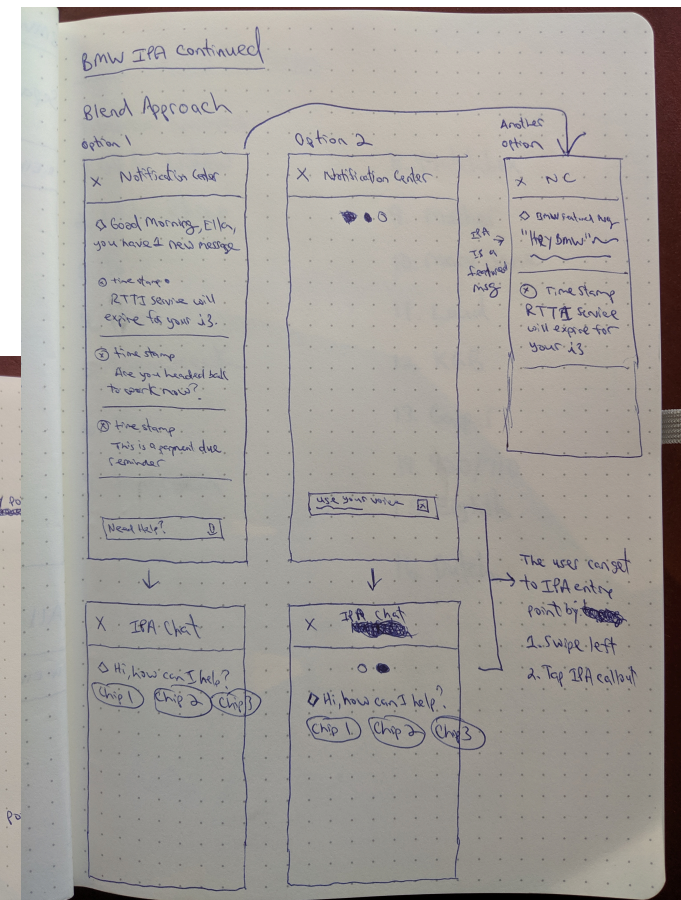 BMW IPA continued
Blend Approach
Option 1
X Notification Center
Good Morning, Ellen,
you have 1 new message
time stamp
RTTI service will
expire for your i3.
time stamp
Are you headed back
to work now?
time stamp
This is a payment due
reminder
Need Help?
X IPA Chat
Hi, how can I help?
Chip 1 Chip 2 Chip 3
Option 2
X Notification Center
use your voice
X IPA Chat
Hi, how can I help?
Chip 1 Chip 2 Chip 3
Another
option
X NC
BMW
"Hey BMW"
X Time stamp
RTTI service
will expire for
your i3
IPA
is a
featured
msg
The user can get
to IPA entry
point by
1. Swipe left
2. Tap IPA callout